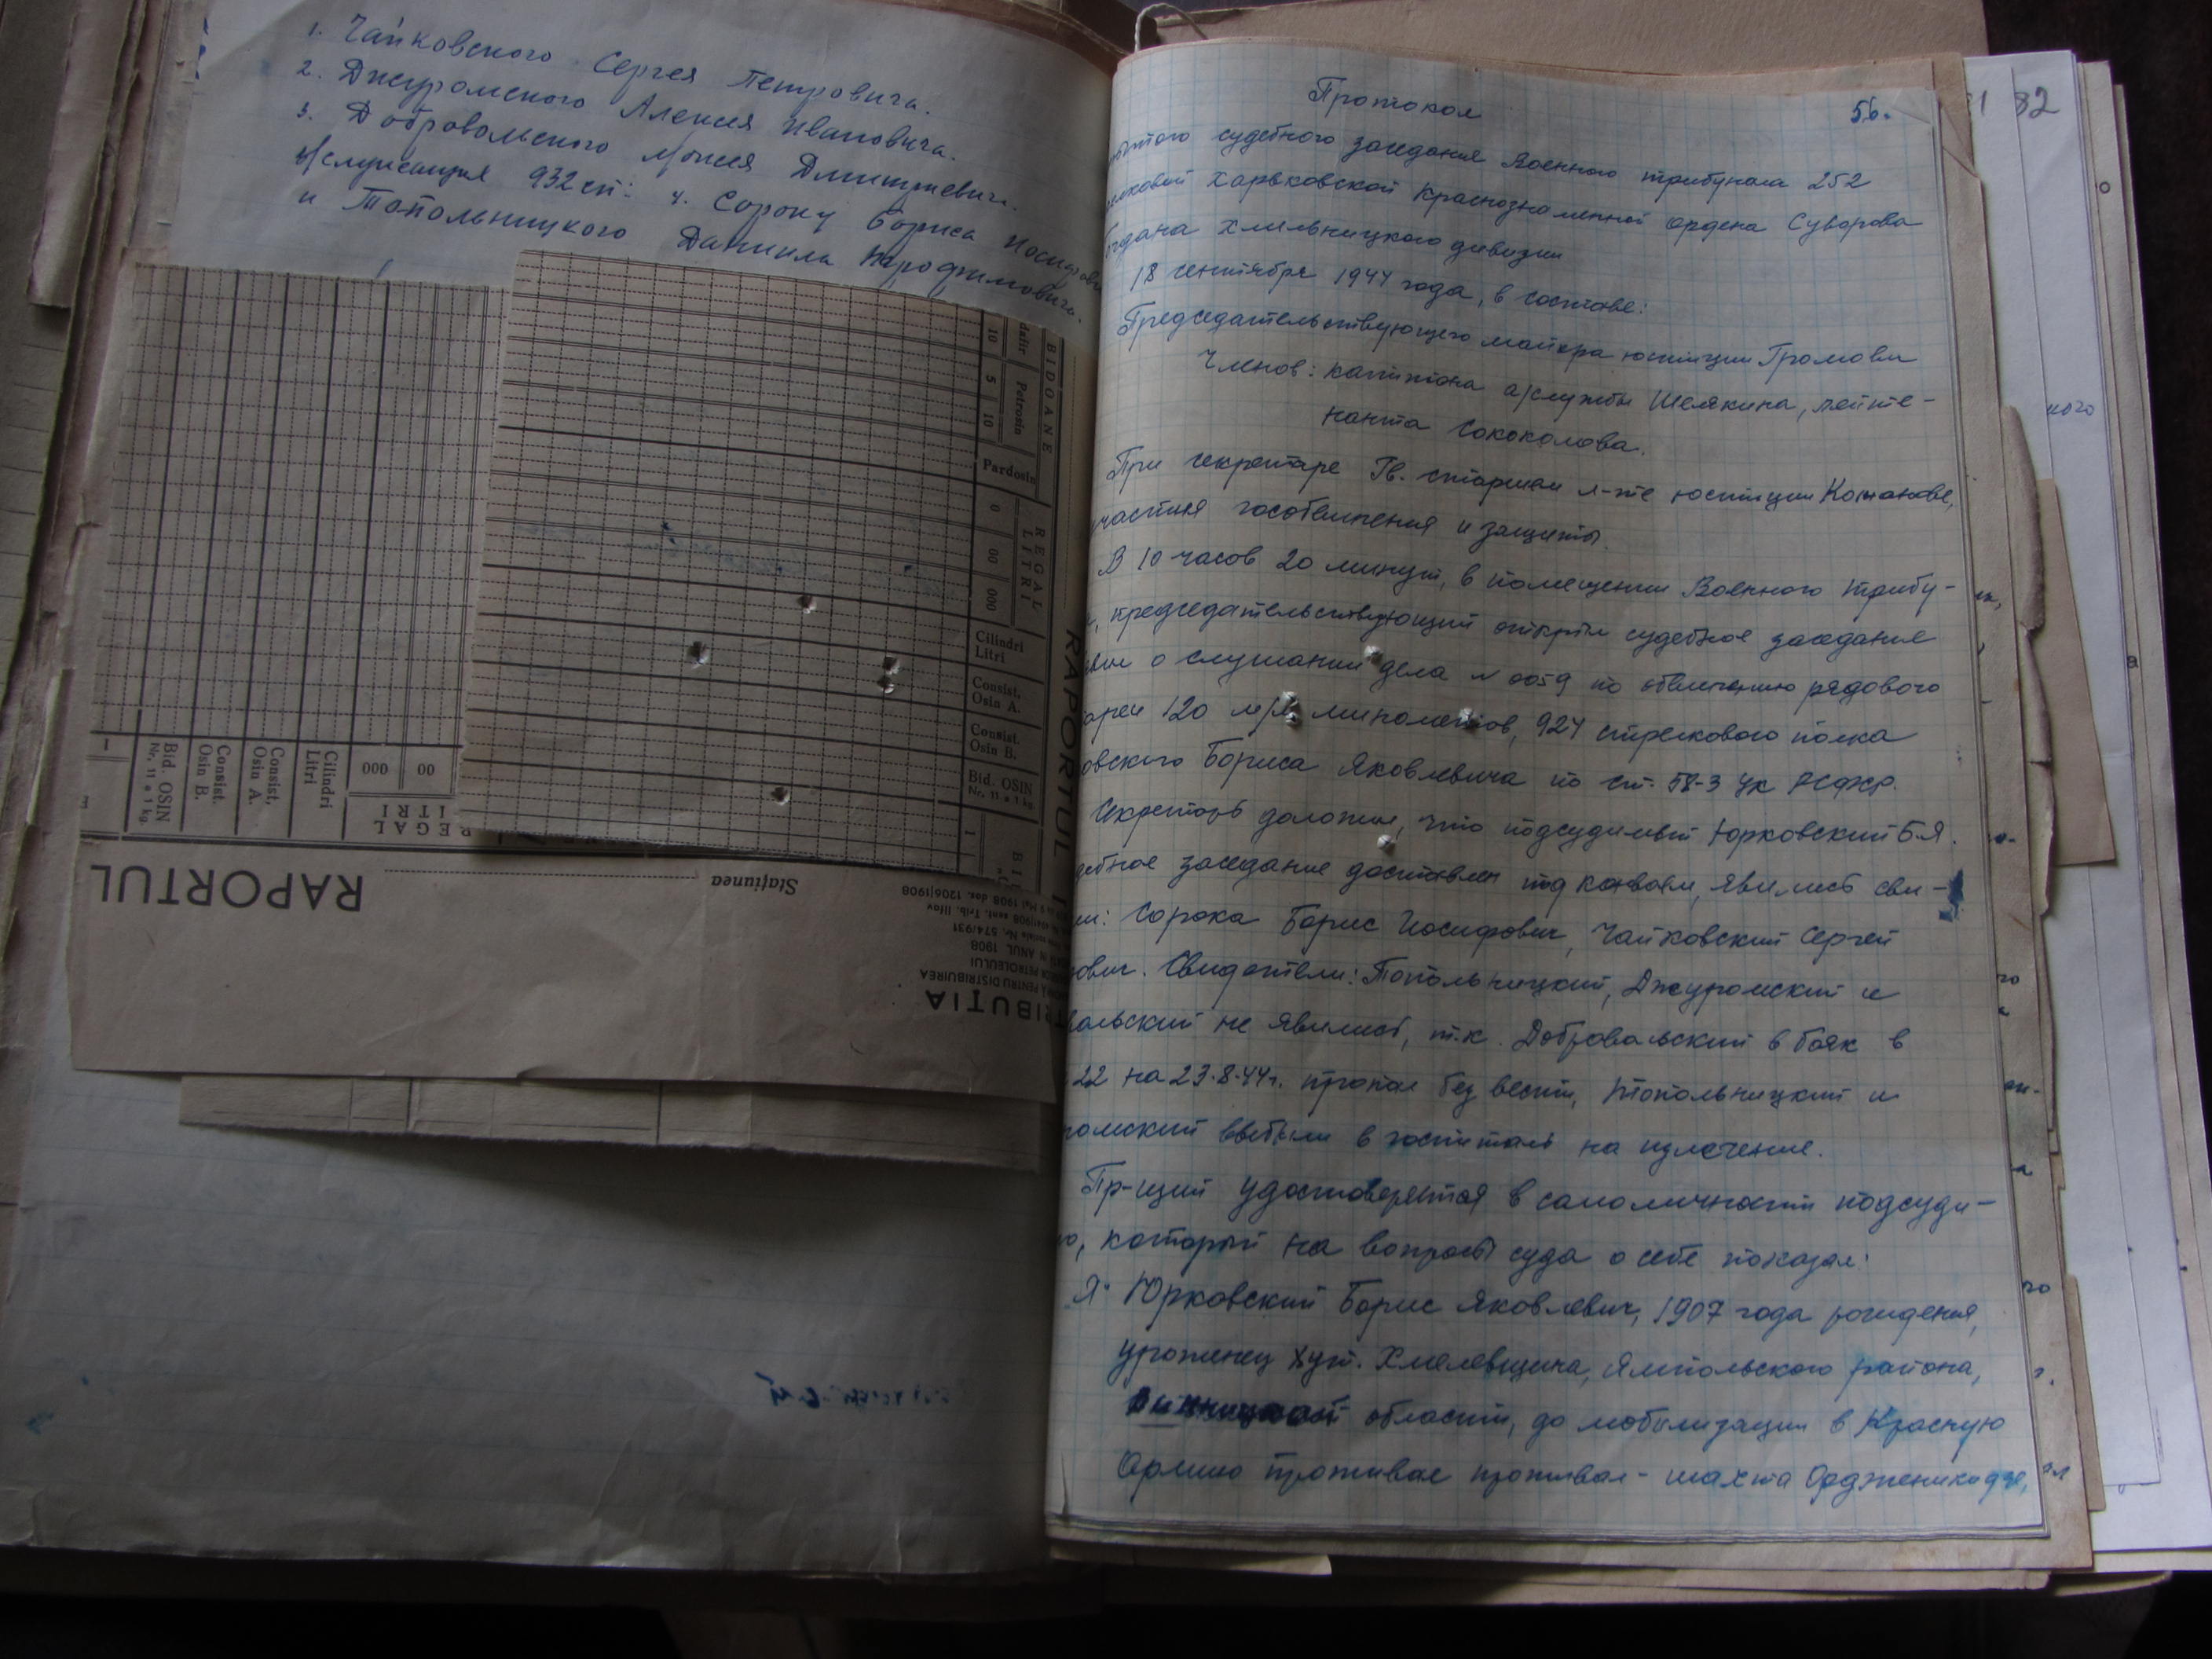 1. Чайковского Сергея Петровича.
2. Джуромского Алексея Ивановича.
3. Добровольского Мусия Дмитриевич.
в/служащия 932 сп: 4. Сороку Бориса Иосифови
и Топольницкого Даниила
BIDOANE
10 5 10
Petrosin
Pardosin
REGAL
LITRI
0 00 000
Cilindri
Litri
Consist.
Osin A.
Consist.
Osin B.
Bid. OSIN
Nr. 11 a 1 kg.
1
RAPORTUL
1
Bid. OSIN
Nr. 11 a 1 kg.
Consist.
Osin B.
Consist.
Osin A.
Cilindri
Litri
000 00
REGAL
ITRI
RAPORTUL
Stațiunea
RIBUȚIA
PENTRU DISTRIBUIREA
PETROLEULUI
ANUL 1908
Nr. 574/931
1908 dos. 1206/1908
Протокол
56.
82
рытого судебного заседания Военного трибунала 252
елковой Харьковской Краснознаменной ордена Суворова
Богдана Хмельницкого дивизии
18 сентября 1944 года, в составе:
Председательствующего майора юстиции Громова
Членов: капитана а/службы Шелякина, лейте-
нанта Сококолова.
При секретаре Гв. старшем л-те юстиции
участия гособвинения и защиты.
В 10 часов 20 минут, в помещении Военного трибу-
, председательствующий открыл судебное заседание
о слушании дела № 0059 по обвинению рядового
арей 120 м/м минометов, 924 стрелкового полка
овского Бориса Яковлевича по ст. 58-3 УК РСФСР.
Секретарь доложил, что подсудимый Юрковский Б.Я.
дебное заседание доставлен под конвоем, явились сви-
ли: Сорока Борис Иосифович, Чайковский Сергей
ович. Свидетели: Топольницкий, Джуромский и
вольский не явились, т.к. Добровольский в боях в
22 на 23.8.44г. пропал без вести, Топольницкий и
ромский выбыли в госпиталь на излечение.
Пр-щий удостоверяется в самоличности подсуди-
го, который на вопросы суда о себе показал:
Я. Юрковский Борис Яковлевич, 1907 года рождения,
уроженец хут. Хмелевщина, Ямпольского района,
Винницкой области, до мобилизации в Красную
Армию проживал проживал - шахта Орджоникидзе,